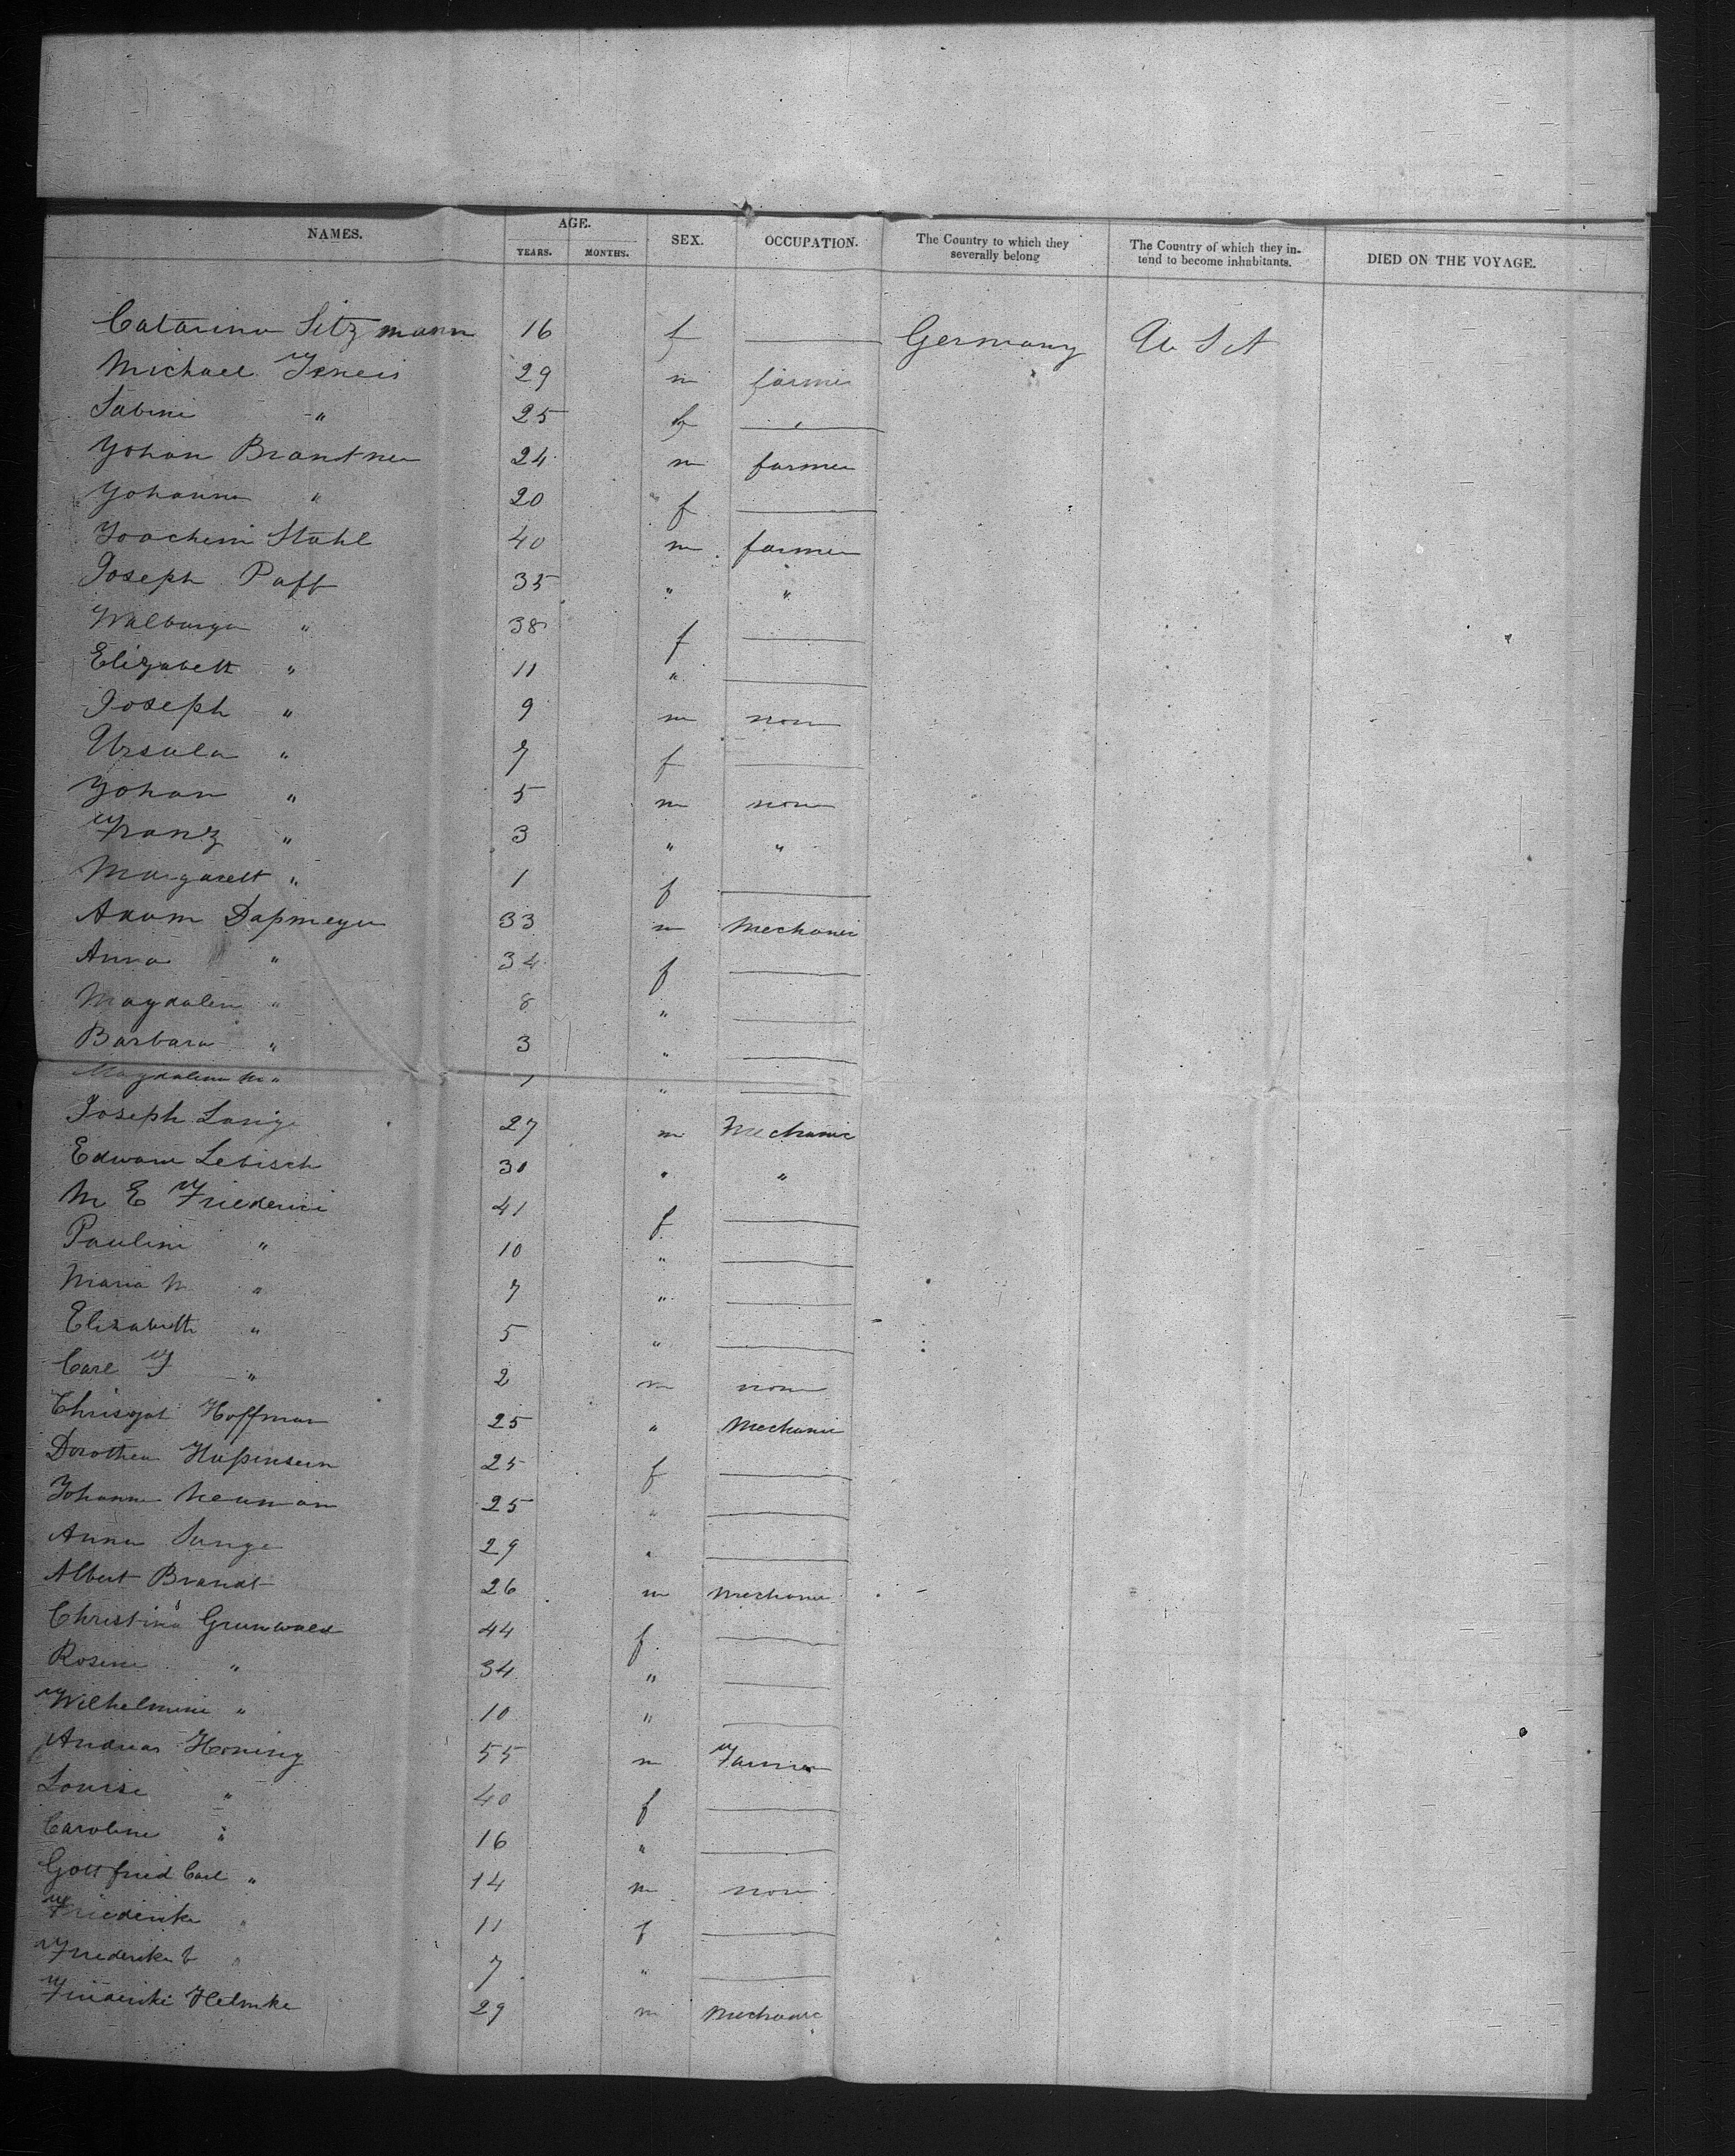 NAMES. AGE. YEARS. MONTHS. SEX. OCCUPATION. The Country to which they severally belong The Country of which they intend to become inhabitants. DIED ON THE VOYAGE.
Catarina Sitzmann 16 f — Germany U S A
Michael 29 m farmer
Sabine " 25 f —
Yohan Brandtner 24 m farmer
Yohanna " 20 f —
Joachim Stahl 40 m farmer
Joseph Paff 35 " "
Walburga " 38 f —
Elizabeth " 11 " —
Joseph " 9 m non
Ursula " 7 f —
Yohan " 5 m non
Franz " 3 " "
Margareth " 1 f —
Adam Dapmeyer 33 m Mechanic
Anna " 34 f —
Magdalen " 8 " —
Barbara " 3 " —
Magdalena M " 1 " —
Joseph Lange 27 m Mechanic
Edward Lebisch 30 " "
M E Friederici 41 f —
Pauline " 10 " —
Maria M " 7 " —
Elisabeth " 5 " —
Carl F " 2 m non
Hoffman 25 " Mechanic
Dorothea 25 f —
Johanna Neuman 25 " —
Anna Lange 29 " —
Albert Brandt 26 m Mechanic
Christina Grunwald 44 f —
Rosine " 34 " —
Wilhelmine " 10 " —
Andreas Horning 55 m Farmer
Louise " 40 f —
Caroline " 16 " —
Gottfried Carl " 14 m non
Friederike " 11 f —
Friederike C " 7 " —
Helmke 29 m Mechanic